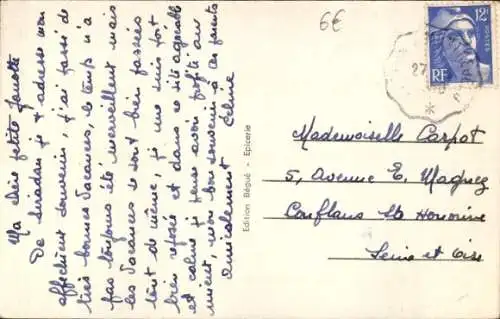 Ma chère petite Janette
De Siradan je t'adresse mon
affectueux souvenir, j'ai passé de
très bonnes vacances, le temps n'a
pas toujours été merveilleux mais
les vacances se sont bien passées
tout de même, je me suis fort
bien reposée et dans ce site agréable
et calme je pense avoir profité au
mieux, mon bon souvenir à tes parents
Amicalement Céline
Edition Bégué - Epicerie
6€
12F
RF
POSTES
27
Mademoiselle Carpot
5, Avenue E. Magnez
Conflans Ste Honorine
Seine et Oise